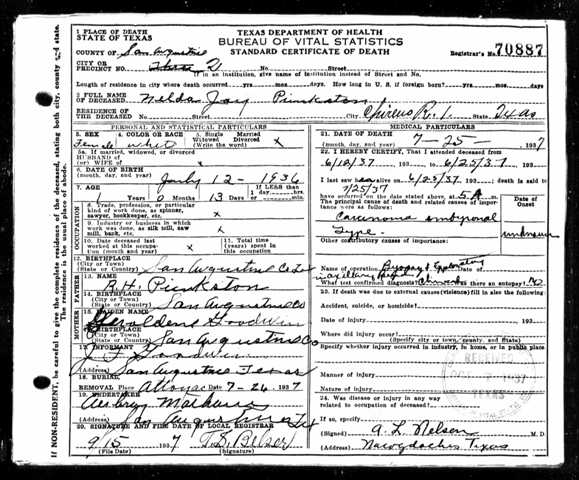 1 PLACE OF DEATH
STATE OF TEXAS
COUNTY OF San Augustine
CITY OR
PRECINCT NO. 2 No. Street
TEXAS DEPARTMENT OF HEALTH
BUREAU OF VITAL STATISTICS
STANDARD CERTIFICATE OF DEATH
Registrar's No. 70887
If in an institution, give name of institution instead of Street and No.
Length of residence in city where death occurred yrs. mos. days. How long in U. S. if foreign born? yrs. mos. days
2 FULL NAME
OF DECEASED Nelda Joy Pinkston
RESIDENCE OF
THE DECEASED No. Street City Chireno R. 1. State Texas
PERSONAL AND STATISTICAL PARTICULARS
3. SEX Female
4. COLOR OR RACE white
5. Single
Married
Widowed
Divorced
(Write the word) x
5a. If married, widowed, or divorced
HUSBAND of
(or) WIFE of x
6. DATE OF BIRTH
(month, day, and year) July 12 - 1936
7. AGE Years 0 Months 13 Days
If LESS than
1 day hrs.
or min.
OCCUPATION
8. Trade, profession, or particular
kind of work done, as spinner,
sawyer, bookkeeper, etc. x
9. Industry or business in which
work was done, as silk mill, saw
mill, bank, etc. x
10. Date deceased last
worked at this occupa-
tion (month and year) x
11. Total time (years)
spent in this
occupation
12. BIRTHPLACE
(City or Town)
(State or Country) San Augustine Co Tex
FATHER
13. NAME B. H. Pinkston
14. BIRTHPLACE
(City or Town)
(State or Country) San Augustine Co
MOTHER
15. MAIDEN NAME Geraldene Goodwin
16. BIRTHPLACE
(City or Town)
(State or Country) San Augustine Co
17. INFORMANT J F Goodwin
(Address) San Augustine Texas
18. BURIAL
REMOVAL Place Attoyac 7-26 1937
19. UNDERTAKER
(Address) San Augustine Tex
20. SIGNATURE AND FILE DATE OF LOCAL REGISTRAR
9/15 1937
(File Date) (Signature)
MEDICAL PARTICULARS
21. DATE OF DEATH
(month, day, and year) 7-25 1937
22. I HEREBY CERTIFY, That I attended deceased from
6/12/37 193 to 6/25/37 193
I last saw alive on 6/25/37 193 ; death is said to
7/25/37
have occurred on the date stated above, at 5 A m.
The principal cause of death and related causes of impor-
tance were as follows:
Date of
Onset
Carcinoma embryonal
Type. unknown
Other contributory causes of importance:
Name of operation Biopsy & Exploratory Date of
What test confirmed diagnosis? Was there an autopsy? No
23. If death was due to external causes (violence) fill in also the following:
Accident, suicide, or homicide?
Date of injury 193
Where did injury occur?
(Specify city or town, county, and State)
Specify whether injury occurred in industry, in home, or in public place
Manner of injury
Nature of injury
24. Was disease or injury in any way
related to occupation of deceased?
If so, specify
(Signed) A. L. Nelson M. D.
(Address) Nacogdoches Texas
RECEIVED
TEXAS